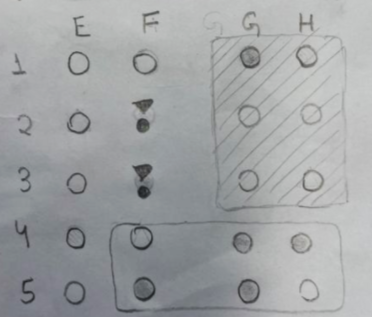 E F G G H
1
2
3
4
5